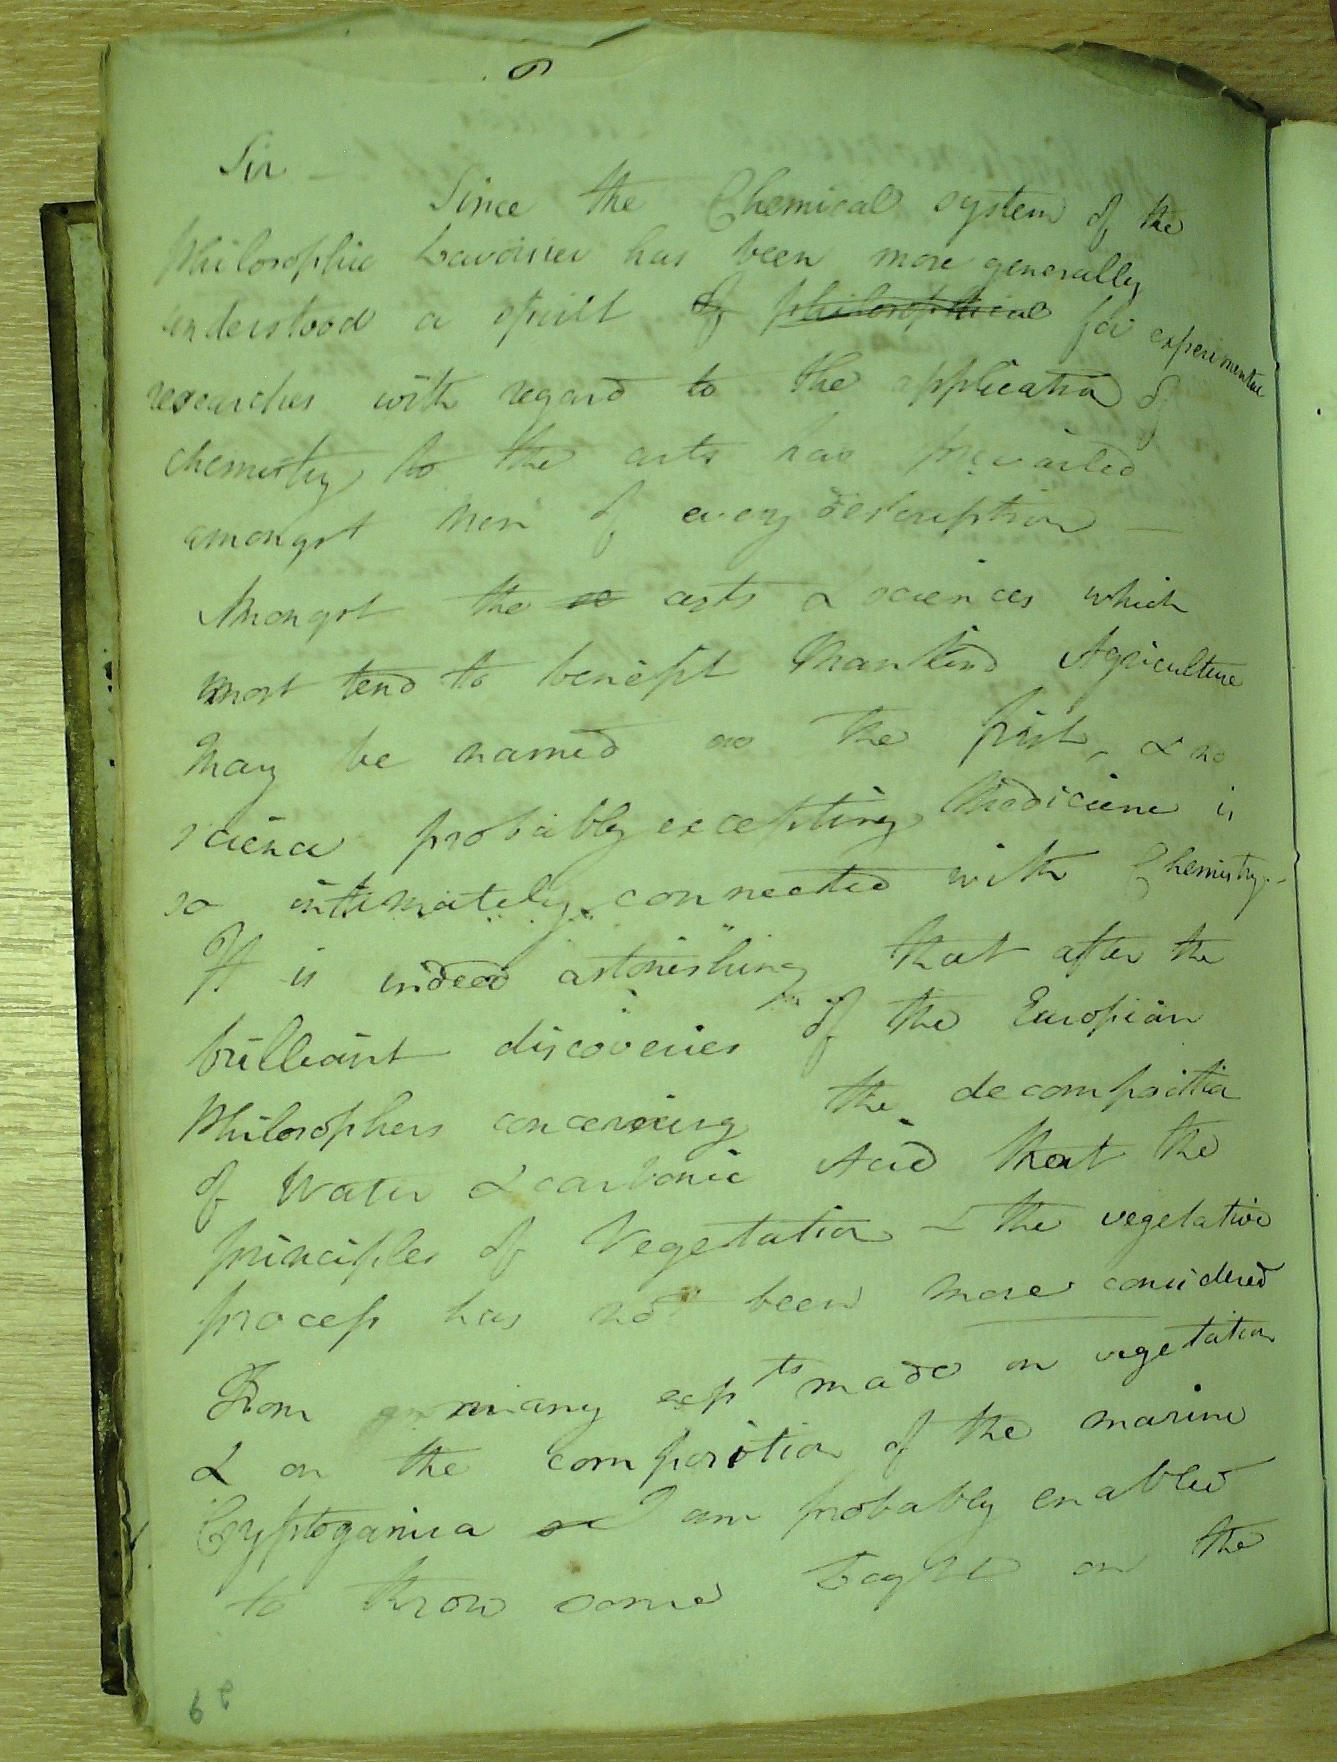 6
Sir
Since the Chemical system of the
Philosophic Lavoisier has been more generally
understood a spirit of philosophical for experimental
researches with regard to the application of
chemistry to the arts has prevailed
amongst Men of every description —
Amongst the arts & sciences which
most tend to benefit Mankind Agriculture
May be named as the first, & no
science probably excepting Medicine is
so intimately connected with Chemistry. -
It is indeed astonishing that after the
brilliant discoveries of the Europian
Philosophers concerning the decompositio
of Water & carbonic Acid that the
principles of Vegetation & the vegetative
process has not been more considered
From many expts made on vegetation
& on the composition of the marine
Cryptogamia I am probably enabled
to throw some Light on the